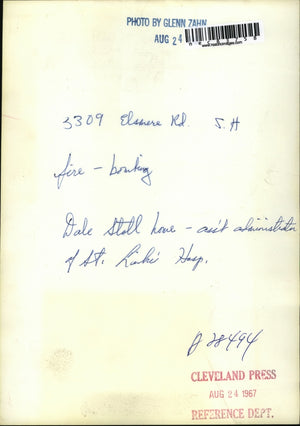 PHOTO BY GLENN ZAHN
AUG 24
3309 Elsmere Rd. S.H
fire - bombing
Dale Stoll home - ass't administrator
of St. Luke's Hosp.
28494
CLEVELAND PRESS
AUG 24 1967
REFERENCE DEPT.